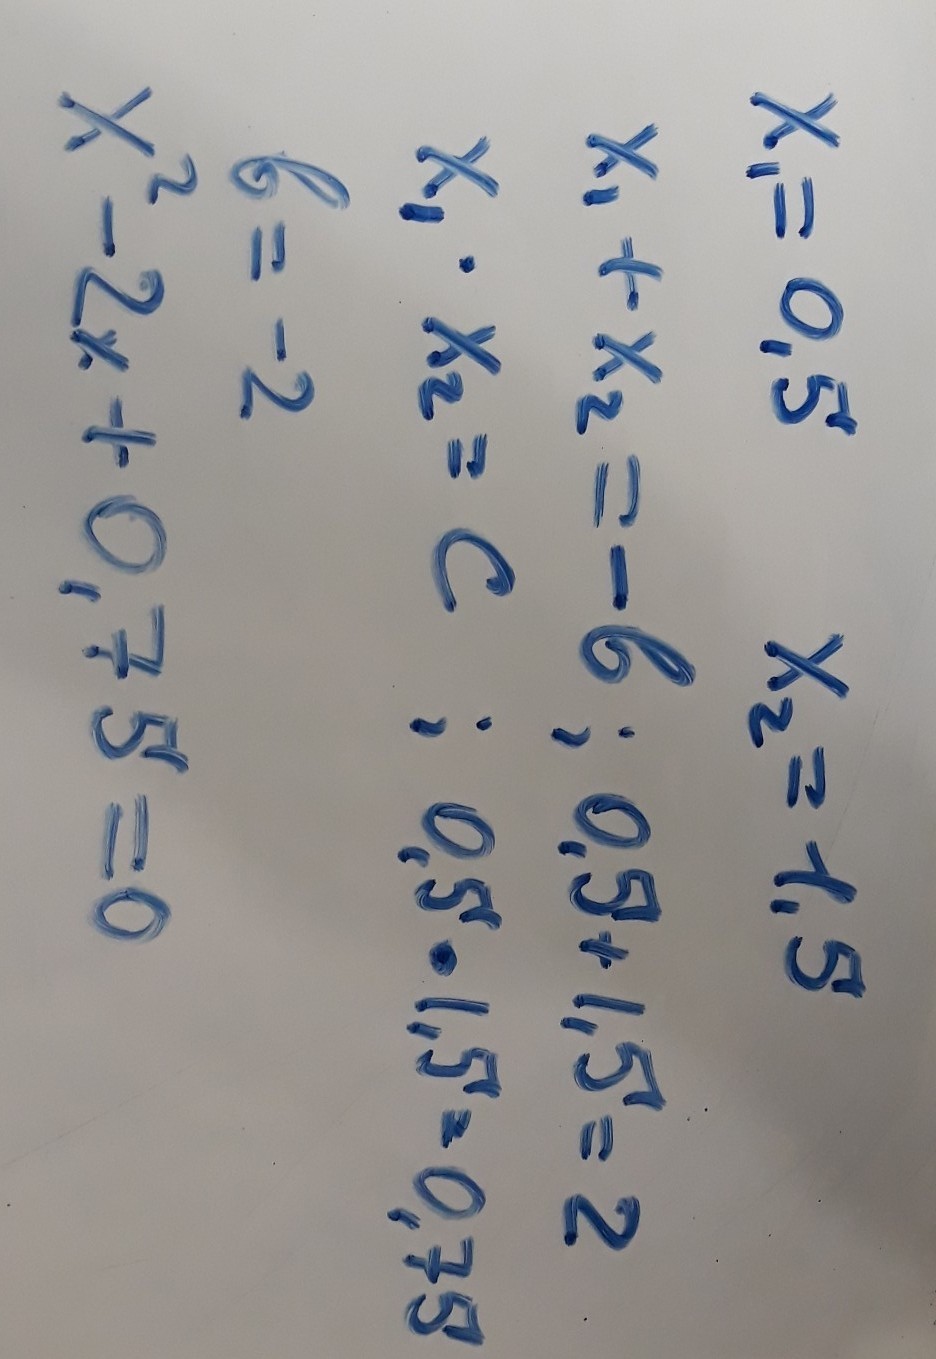 x₁ = 0,5 x₂ = 1,5
x₁ + x₂ = -б ; 0,5 + 1,5 = 2
x₁ · x₂ = c ; 0,5 · 1,5 = 0,75
б = -2
x² - 2x + 0,75 = 0